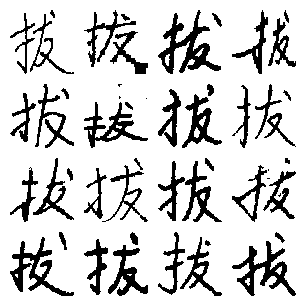 拔拔拔拔
拔拔拔拔
拔拔拔拔
拔拔拔拔